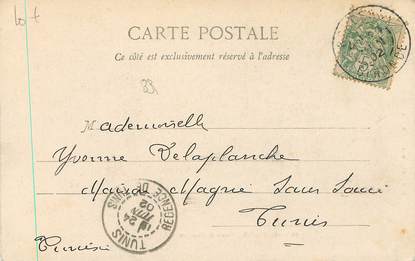 CARTE POSTALE
Ce côté est exclusivement réservé à l'adresse
Mademoiselle
Yvonne Delaplanche
Maison Magné Sans Souci
Tunis
Tunisie
TUNIS
REGENCE DE TUNIS
24
02